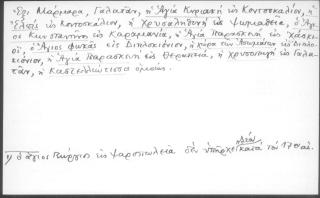 Ἐξι Μαρμαρα, Γαλατᾶν, ἡ Ἁγία Κυριακή εἰς Κοντοσκάλιον, ἡ
Ἐλπίς εἰς Κοντοσκάλιον, ἡ Χρυσαλήθινη εἰς Ψωμαθεῖα, ὁ Ἅγι-
ος Κωνσταντῖνος εἰς Καραμανία, ἡ Ἁγία Παρασκευή εἰς Χάσκι-
οϊ, ὁ Ἅγιος Φωκᾶς εἰς Διπλοκιόνιον, ἡ χώρα τῶν Ἀσωμάτων εἰς Διπλο-
κιόνιον, ἡ Ἁγία Παρασκευή εἰς Θεραπειά, ἡ Χρυσοπηγή εἰς Γαλα-
τᾶν, ἡ Καστελλιώτισσα ὁμοίως.
1) ὁ ἅγιος Γεώργιος εἰς Ψαροπωλεῖα δέν ὑπῆρχε κατά τόν 17ον αἰ.